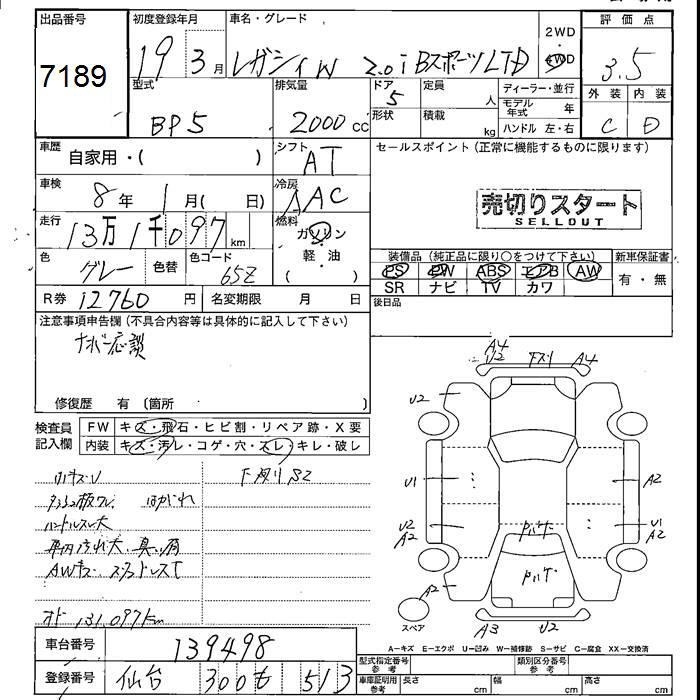 出品番号
7189
初度登録年月
19 3月
車名・グレード
レガシィW 2.0i BスポーツLTD
2WD
4WD
評価点
3.5
型式
BP5
排気量
2000cc
ドア
5
形状
定員
人
積載
kg
ディーラー・並行
モデル年式 年
ハンドル 左・右
外装 内装
C D
車歴
自家用・( )
シフト
AT
車検
8年 1月( 日)
冷房
AAC
走行
13万1千097km
燃料
ガソリン
軽・油
色
グレー
色替
色コード
65Z
R券 12760 円
名変期限 月 日
セールスポイント(正常に機能するものに限ります)
売切りスタート
SELLOUT
装備品(純正品に限り○をつけて下さい)
新車保証書
PS PW ABS エアB AW
SR ナビ TV カワ
有・無
後日品
注意事項申告欄(不具合内容等は具体的に記入して下さい)
ナンバー応談
修復歴 有 〔箇所 〕
検査員記入欄
FW キズ・飛石・ヒビ割・リペア跡・X要
内装 キズ・汚レ・コゲ・穴・スレ・キレ・破レ
小キズU
下廻りS2
ハンドルスレ大
オド 131,097km
A4
U2
下スリ
A4
U2
U1
U2
A2
A2
A2
U1
A2
A3
U2
スペア
A-キズ E-エクボ U-凹み W-補修跡 S-サビ C-腐食 XX-交換済
車台番号
139498
登録番号
仙台 300 も 513
型式指定番号
参考
類別区分番号
参考
車庫証明用
参考
長さ cm
幅 cm
高さ cm